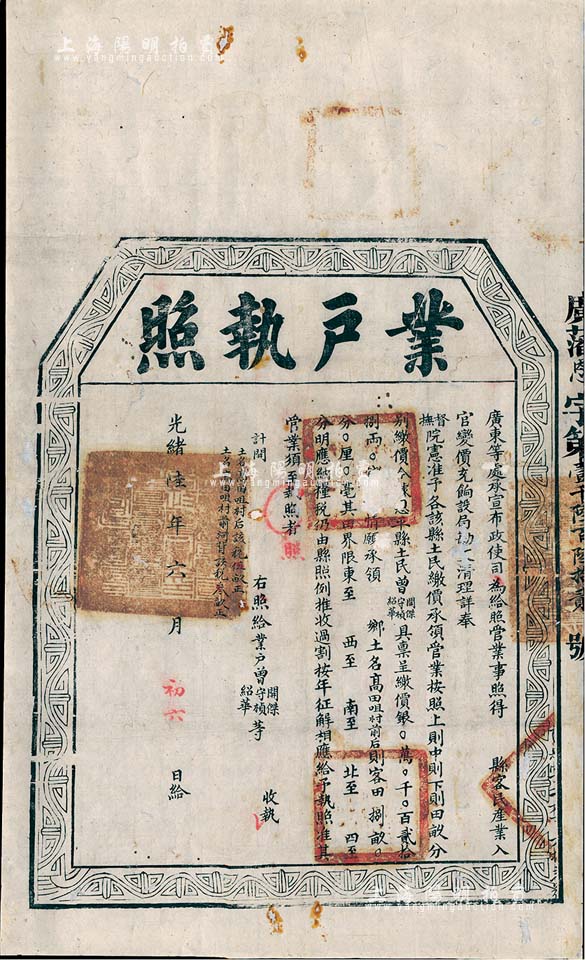 上海陽明拍賣
www.yangmingauction.com
業戶執照
廣東等處承宣布政使司為給照管業事照得 縣客民產業入
官變價充餉設局勘丈清理詳奉
督撫院憲准予各該縣土民繳價承領管業按照上則中則下則田畝分
別繳價 恩平縣土民曾開傑守楨紹華具稟呈繳價銀〇萬〇千〇百貳拾
捌兩〇 情願承領 鄉土名高田咀村前后則客田捌畝〇
分〇厘〇毫其田界限東至 西至 南至 北至 四至
分明應納糧稅仍由縣照例推收過割按年征解相應給予執照准其
管業須至執照者
計開
土名高田咀村后該稅伍畝正
土名高田咀村前河背該稅叁畝正
右照給業戶曾開傑守楨紹華等 收執
光緒陸年六月初六日給
照
號